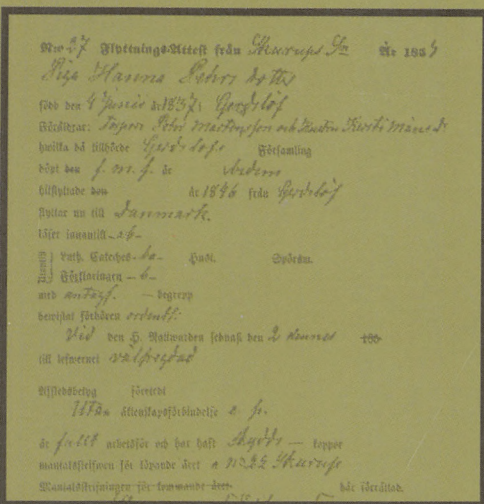 No 27 Flyttnings-Attest från Skurups Sn År 1855
Piga Hanna Pehrs dotter
född den 4 Junii år 1837 i Gerdslöf
Föräldrar: Pehr Mårtensson och Kersti Månsd
hwilka då tillhörde Gerdslöfs Församling
döpt den f. m. f. är
tillflyttade den år 1846 från Gerdslöf
flyttar nu till Danmark.
läser innantill - ab -
Luth. Cateches - ba - Hust. Spörsm.
Förklaringen - b -
med antagl. — begrepp
bewistat förhören ordentl:
Wid den H. Nattwarden sednast den 2 dennes 185
till lefwernet välfrejdad
Afskedsbetyg företedt
Utan äktenskapsförbindelse
är fullt arbetsför och har haft skydds — koppor
mantalsskrifwen för löpande året å No 22 Skurup
Mantalsskrifningen för kommande året här förrättad.